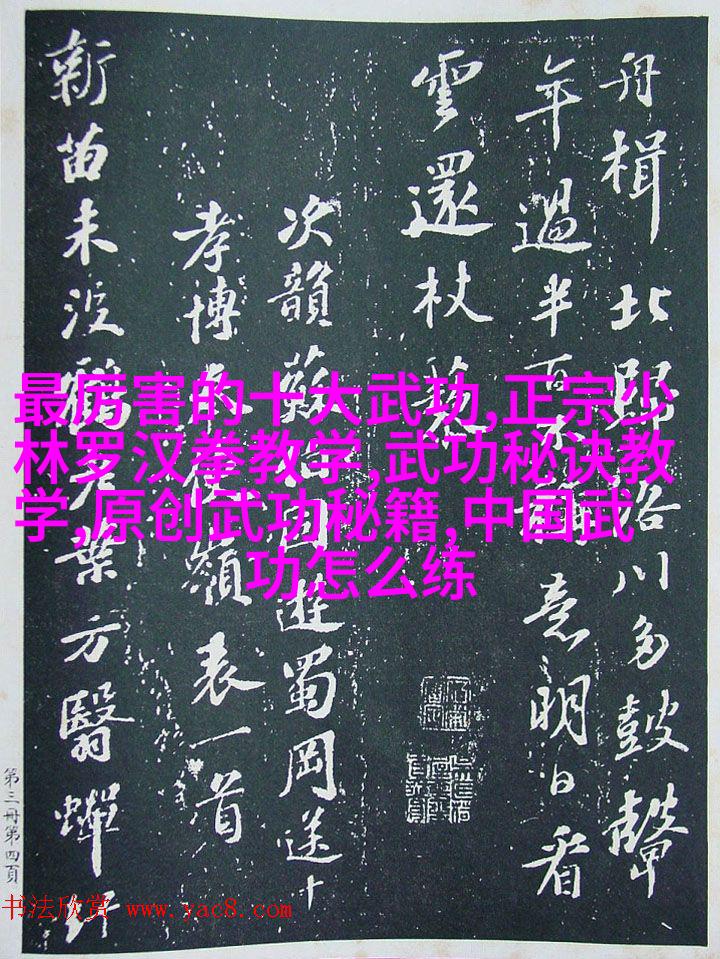 舟楫北歸洛川多鼓鼙
年過半百不意明日看
雲還杖藜
次韻蘇伯固遊蜀岡送
孝博奉使嶺表一首
新苗未没鶴老葉方翳蟬
最厉害的十大武功,正宗少
林罗汉拳教学,武功秘诀教
学,原创武功秘籍,中国武
功怎么练
第三冊第四頁
书法欣赏 www.yac8.com